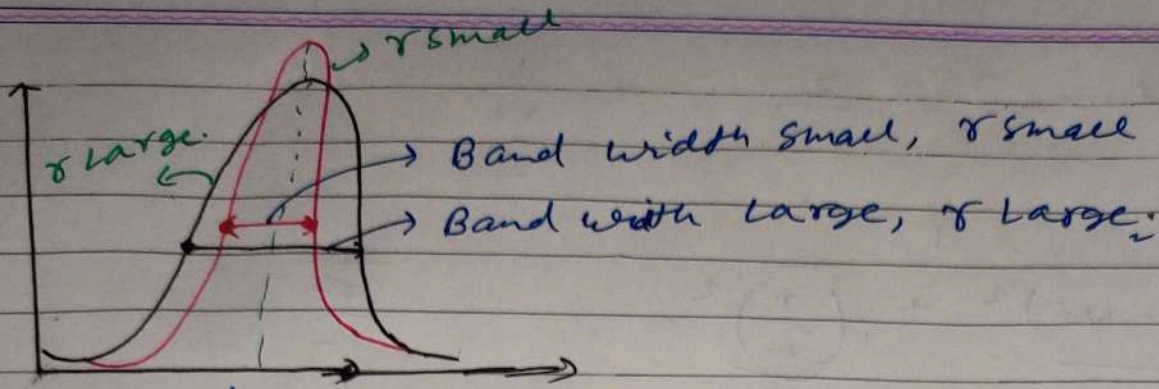 r small
r Large.
Band width small, r small
Band width Large, r Large.